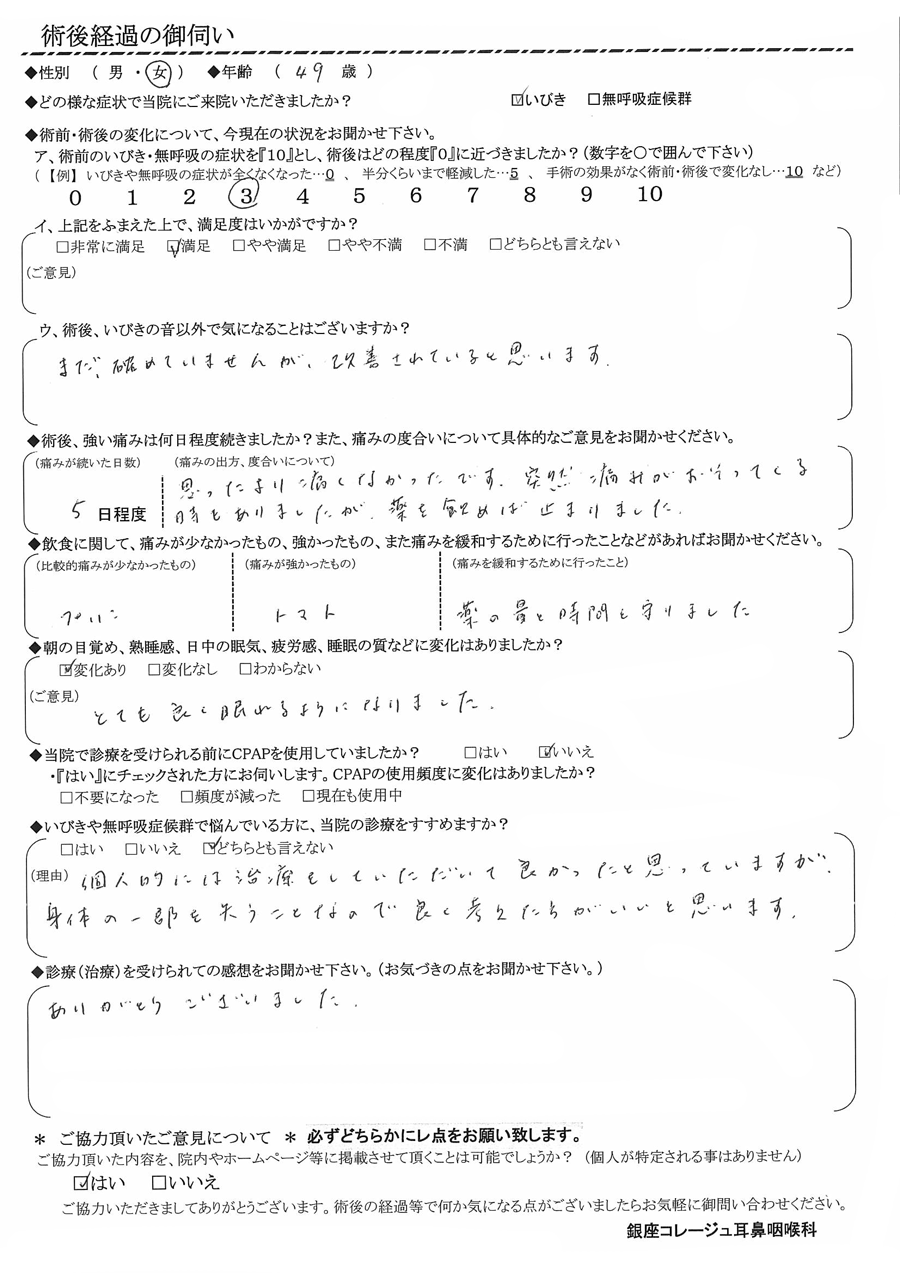 術後経過の御伺い
◆性別 （ 男 ・ 女 ） ◆年齢 （ 49 歳 ）
◆どの様な症状で当院にご来院いただきましたか？ ☑いびき □無呼吸症候群
◆術前・術後の変化について、今現在の状況をお聞かせ下さい。
ア、術前のいびき・無呼吸の症状を『10』とし、術後はどの程度『0』に近づきましたか？（数字を○で囲んで下さい）
（ 【例】 いびきや無呼吸の症状が全くなくなった…0 、 半分くらいまで軽減した…5 、 手術の効果がなく術前・術後で変化なし…10 など）
0 1 2 3 4 5 6 7 8 9 10
イ、上記をふまえた上で、満足度はいかがですか？
□非常に満足 ☑満足 □やや満足 □やや不満 □不満 □どちらとも言えない
（ご意見）
ウ、術後、いびきの音以外で気になることはございますか？
まだ、確めていませんが、改善されていると思います。
◆術後、強い痛みは何日程度続きましたか？また、痛みの度合いについて具体的なご意見をお聞かせください。
（痛みが続いた日数） （痛みの出方、度合いについて）
思ったより痛くなかったです。突然痛みがおそってくる
5 日程度 時もありましたが、薬を飲めば止まりました。
◆飲食に関して、痛みが少なかったもの、強かったもの、また痛みを緩和するために行ったことなどがあればお聞かせください。
（比較的痛みが少なかったもの） （痛みが強かったもの） （痛みを緩和するために行ったこと）
トマト 薬の量と時間を守りました
◆朝の目覚め、熟睡感、日中の眠気、疲労感、睡眠の質などに変化はありましたか？
☑変化あり □変化なし □わからない
（ご意見）
とても良く眠れるようになりました。
◆当院で診療を受けられる前にCPAPを使用していましたか？ □はい ☑いいえ
・『はい』にチェックされた方にお伺いします。CPAPの使用頻度に変化はありましたか？
□不要になった □頻度が減った □現在も使用中
◆いびきや無呼吸症候群で悩んでいる方に、当院の診療をすすめますか？
□はい □いいえ ☑どちらとも言えない
（理由） 個人的には治療をしていただいて良かったと思っていますが、
身体の一部を失うことなので良く考えたらがいいと思います。
◆診療（治療）を受けられての感想をお聞かせ下さい。（お気づきの点をお聞かせ下さい。）
ありがとうございました。
＊ ご協力頂いたご意見について ＊ 必ずどちらかにレ点をお願い致します。
ご協力頂いた内容を、院内やホームページ等に掲載させて頂くことは可能でしょうか？ （個人が特定される事はありません）
☑はい □いいえ
ご協力いただきましてありがとうございます。術後の経過等で何か気になる点がございましたらお気軽に御問い合わせください。
銀座コレージュ耳鼻咽喉科